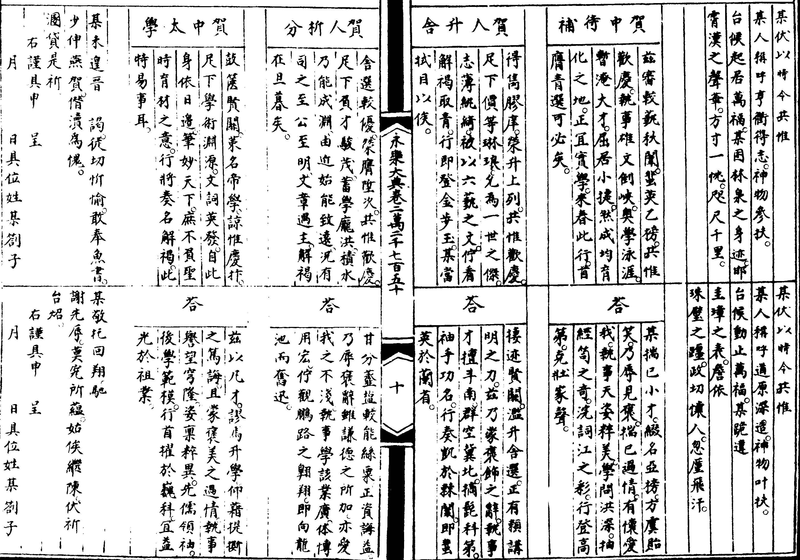 某伏以時令共惟
某人稱呼亨衢得志。神物參扶。
台候起居萬福。某困林泉之身。迹邇
霄漢之聲華。方寸一恍。咫尺千里。
某伏以時令共惟
某人稱呼道原深造。神物叶扶。
台候動止萬福。某跪遠
圭璋之表。詹依
珠璧之躔。政切懷人。忽厪飛汗。
賀中待補
茲審較藝秋闈。蜚英乙榜。共惟
歡慶。執事雄文劍峽。奧學泳涯。
暫淹大才。屈居小捷。然成均育
化之地。正宜實學。來春此行。首
膺青選可必矣。
答
某揣已小才。綴名亞榜。方虞貽
笑。乃辱見褒。揣已過情。有懷愛
我。執事天姿粹美。學問洪深。抽
經笥之奇。洗詞江之彩。行登高
第。克壯家聲。
賀人升舍
得雋膠庠。榮升上列。共惟歡慶。
足下價等琳琅。允為一世之傑。
志薄紈綺。被以六藝之文。佇看
解褐取青。行即登金步玉。某當
拭目以俟。
答
接迹賢關。濫升舍選。正有賴講
明之力。茲乃蒙褒飾之辭。執事
才擅斗南。群空冀北。摘髭科第。
袖手功名。行奏凱於棘闈。即蜚
英於蘭省。
永樂大典卷二萬二千七百五十
十
賀人析分
舍選較優。榮膺陞次。共惟歡慶。
足下負才駿茂。蓄學龐洪。積水
乃能成淵。由近始能致遠。況有
司之至公至明。文章遇主。解褐
在旦暮矣。
答
甘分虀鹽。較能絲粟。正資誨益。
乃辱褒辭。雖謙德之所加。亦愛
我之不淺。執事學該業廣。体博
用宏。佇觀鵬路之翱翔。即向龍
池而奮迅。
賀中太學
鼓篋賢關。策名帝學。諒惟慶抃。
足下學術淵源。文詞英發。自此
身依日邊。筆妙天下。庶不負聖
時育材之意。行將奏名解褐。此
特易事耳。
答
茲以凡才。謬焉升學。仰藉提撕
之篤誨。且蒙褒美之過情。執事
譽望穹隆。姿稟粹異。先儒領袖。
後學範模。行首擢於巍科。宜益
光於祖業。
某未遑晉 謁。徒切忻愉。敢奉魚書。
少伸燕賀。僭瀆為愧。
涵貸是祈
右謹具申 呈
月 日具位姓某劄子
某敬托回翔。馳
謝先辱。莫究所蘊。姑俟繼陳。伏祈
台炤。
右謹具申 呈
月 日具位姓某劄子